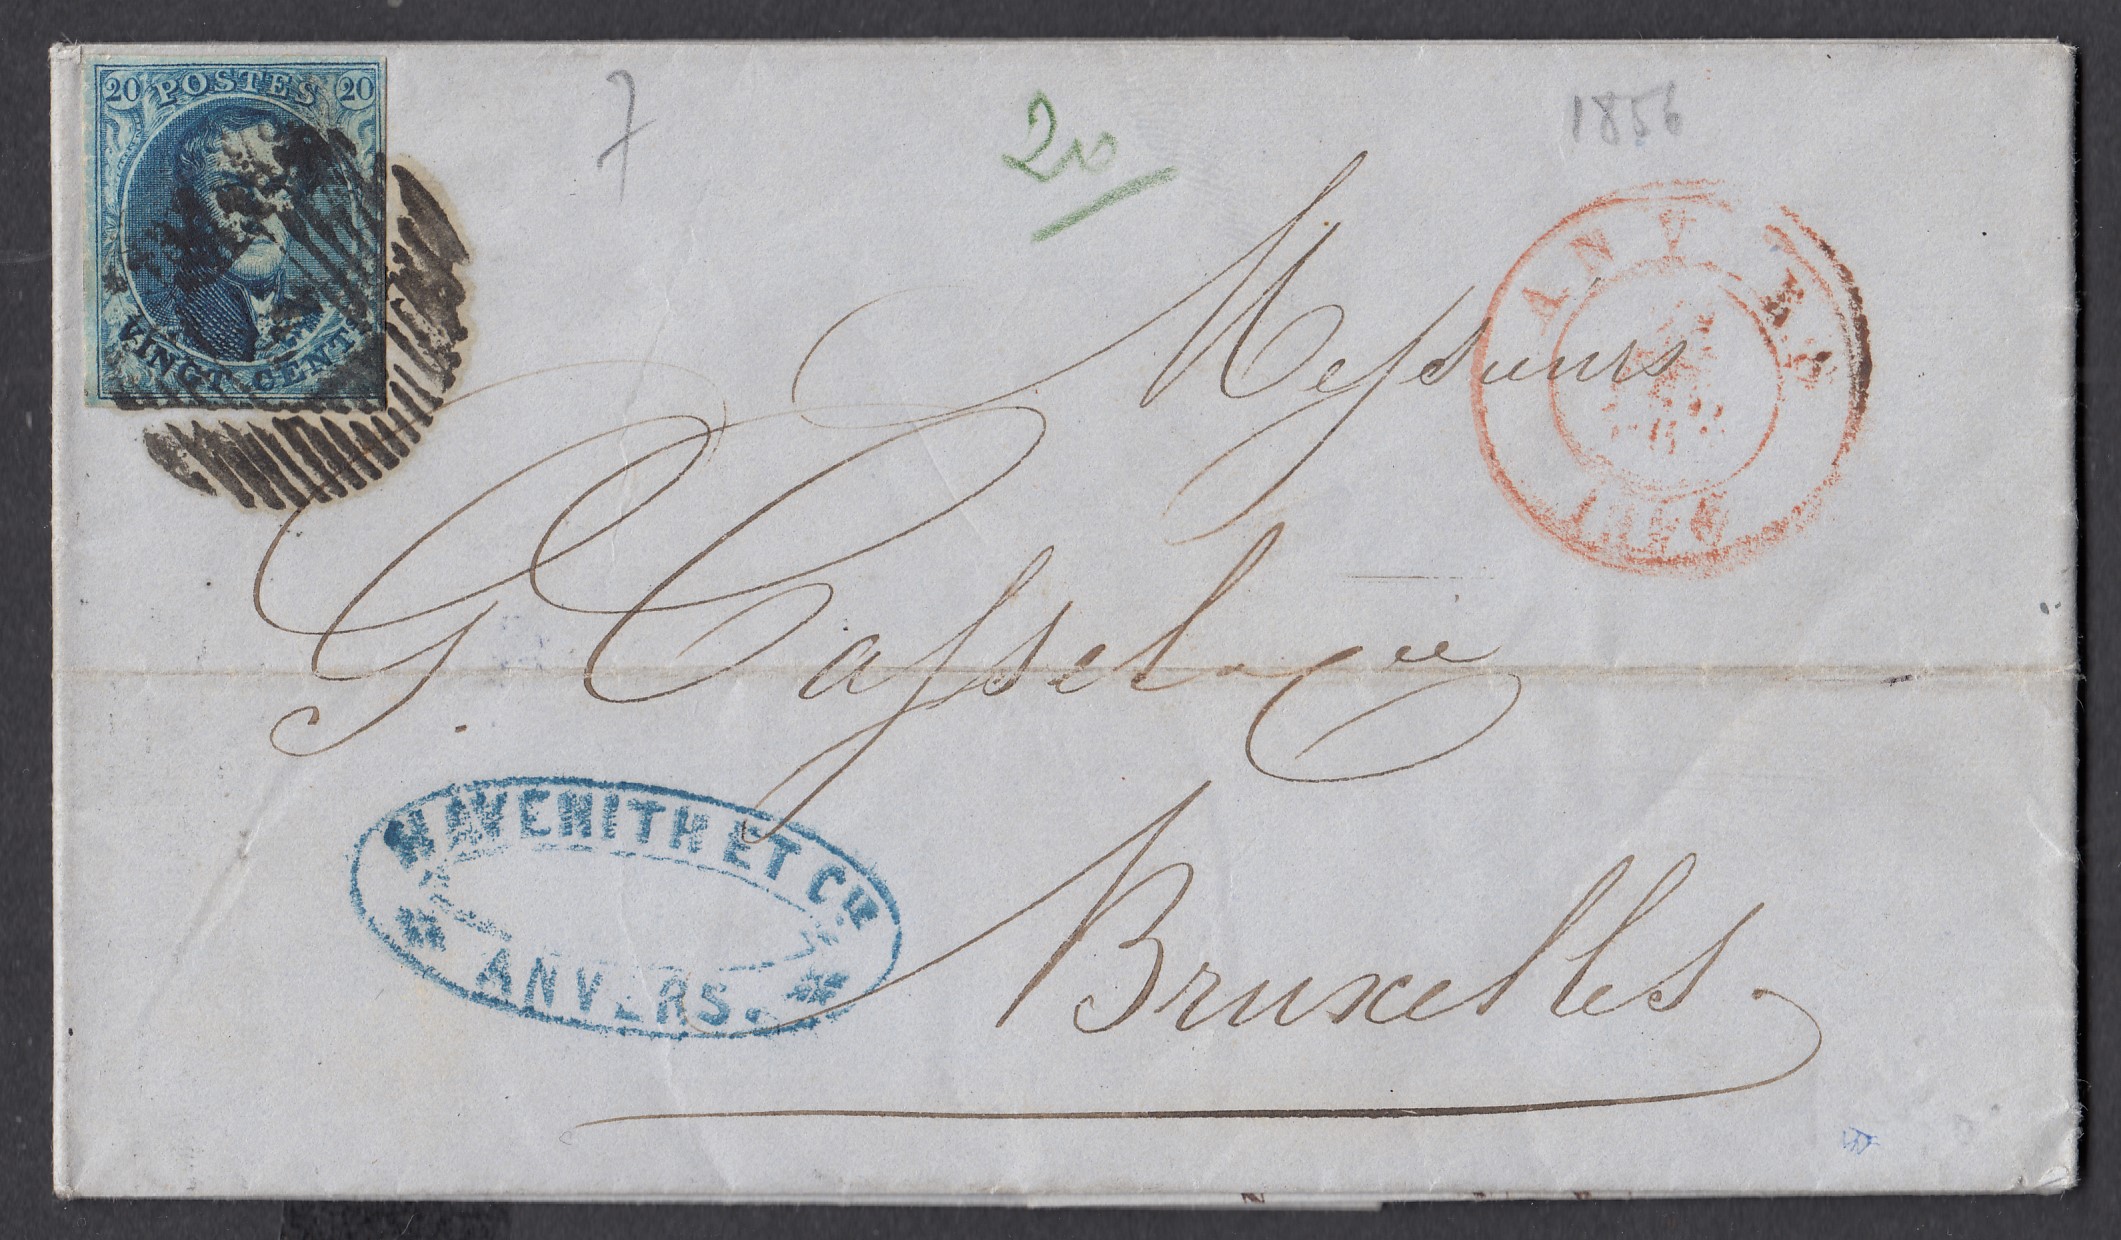 20 POSTES 20
VINGT CENT
7
20
1856
ANVERS
Messieurs
G. Cassel & Cie
HAVENITH ET CIE
ANVERS.
Bruxelles.